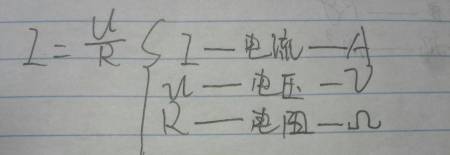 I = U/R { I — 电流 — A
U — 电压 — V
R — 电阻 — Ω